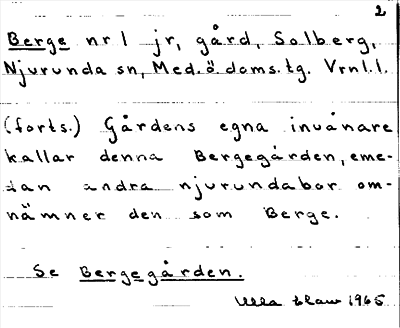 2
Berge nr 1 jr, gård, Solberg,
Njurunda sn, Med.ö.doms.tg. Vrnl.l.
(forts.) Gårdens egna invånare
kallar denna Bergegården, eme-
dan andra njurundabor om-
nämner den som Berge.
Se Bergegården.
Ulla 1965